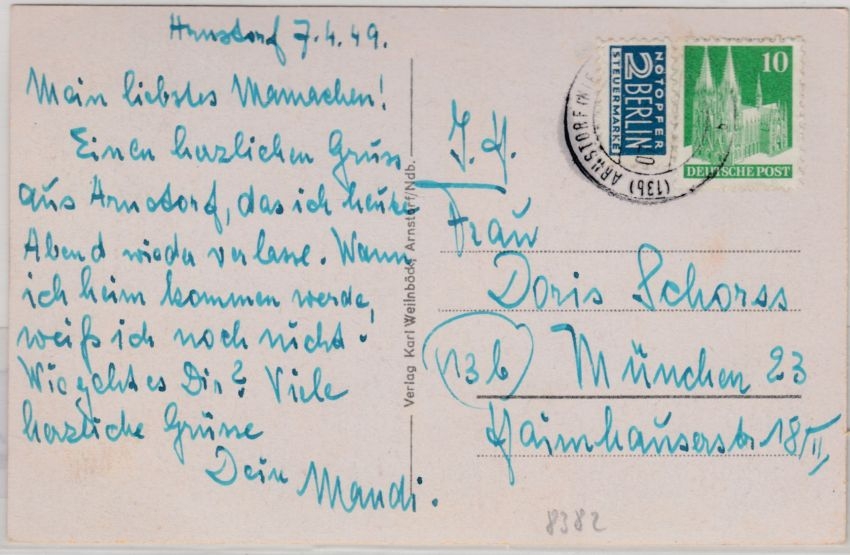 Arnstorf 7.4.49.
Mein liebstes Mamachen!
Einen herzlichen Gruss
aus Arnstorf, das ich heute
Abend wieder verlasse. Wann
ich heim kommen werde,
weiß ich noch nicht.
Wie geht es Dir? Viele
herzliche Grüsse
Dein Mandi.
Verlag Karl Weilnböck, Arnstorf/Ndb.
NOTOPFER
2 BERLIN
STEUERMARKE
10
DEUTSCHE POST
(13b) ARNSTORF
I. H.
Frau
Doris Schorss
13b München 23
Haimhauserstr 18/II,
8382